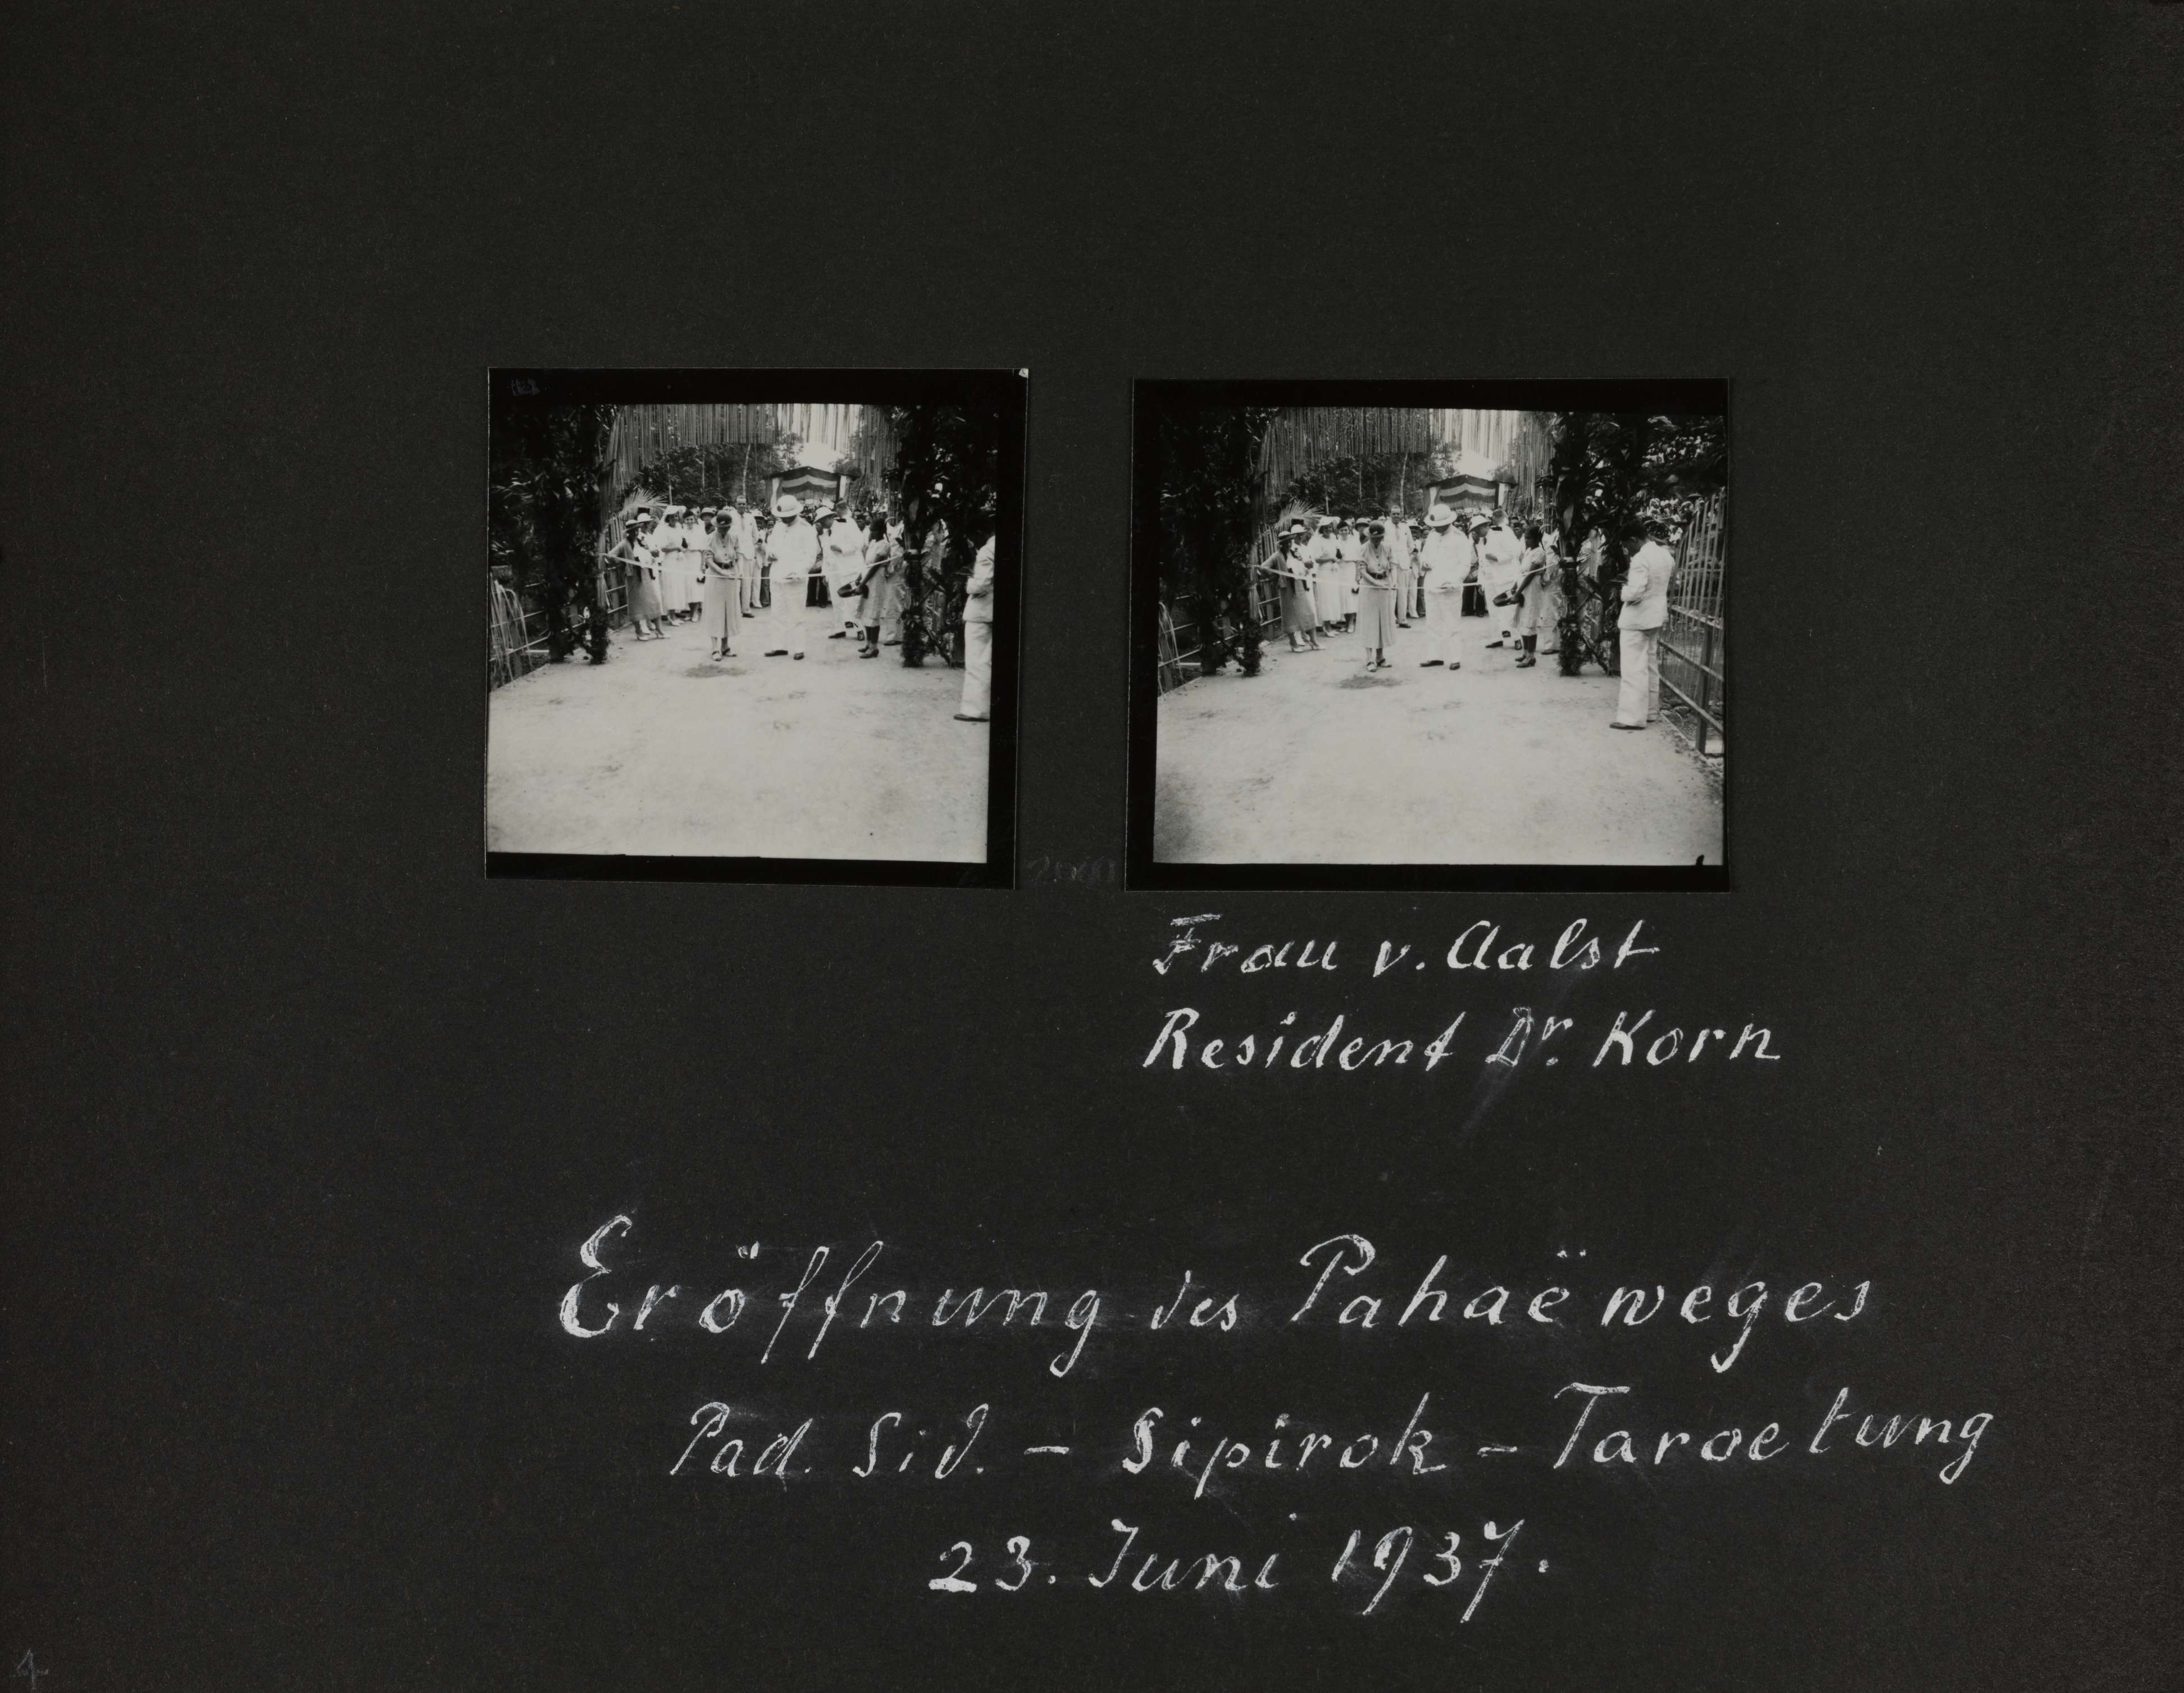 Frau v. Aalst
Resident Dr. Korn
Eröffnung des Pahaëweges
Pad. Sid. - Sipirok - Taroetung
23. Juni 1937.